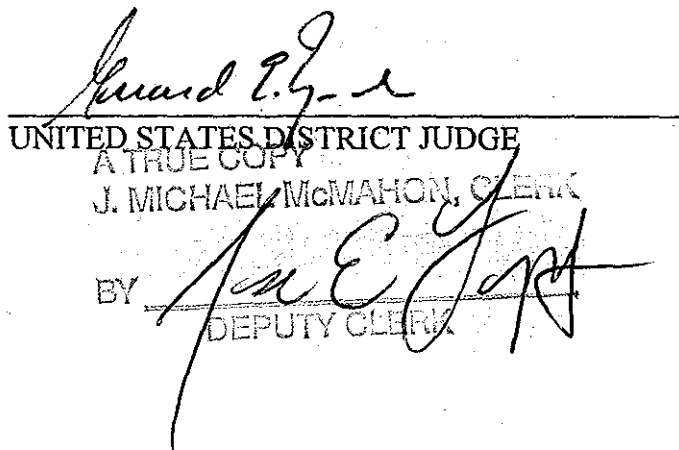 UNITED STATES DISTRICT JUDGE
A TRUE COPY
J. MICHAEL McMAHON, CLERK
BY
DEPUTY CLERK